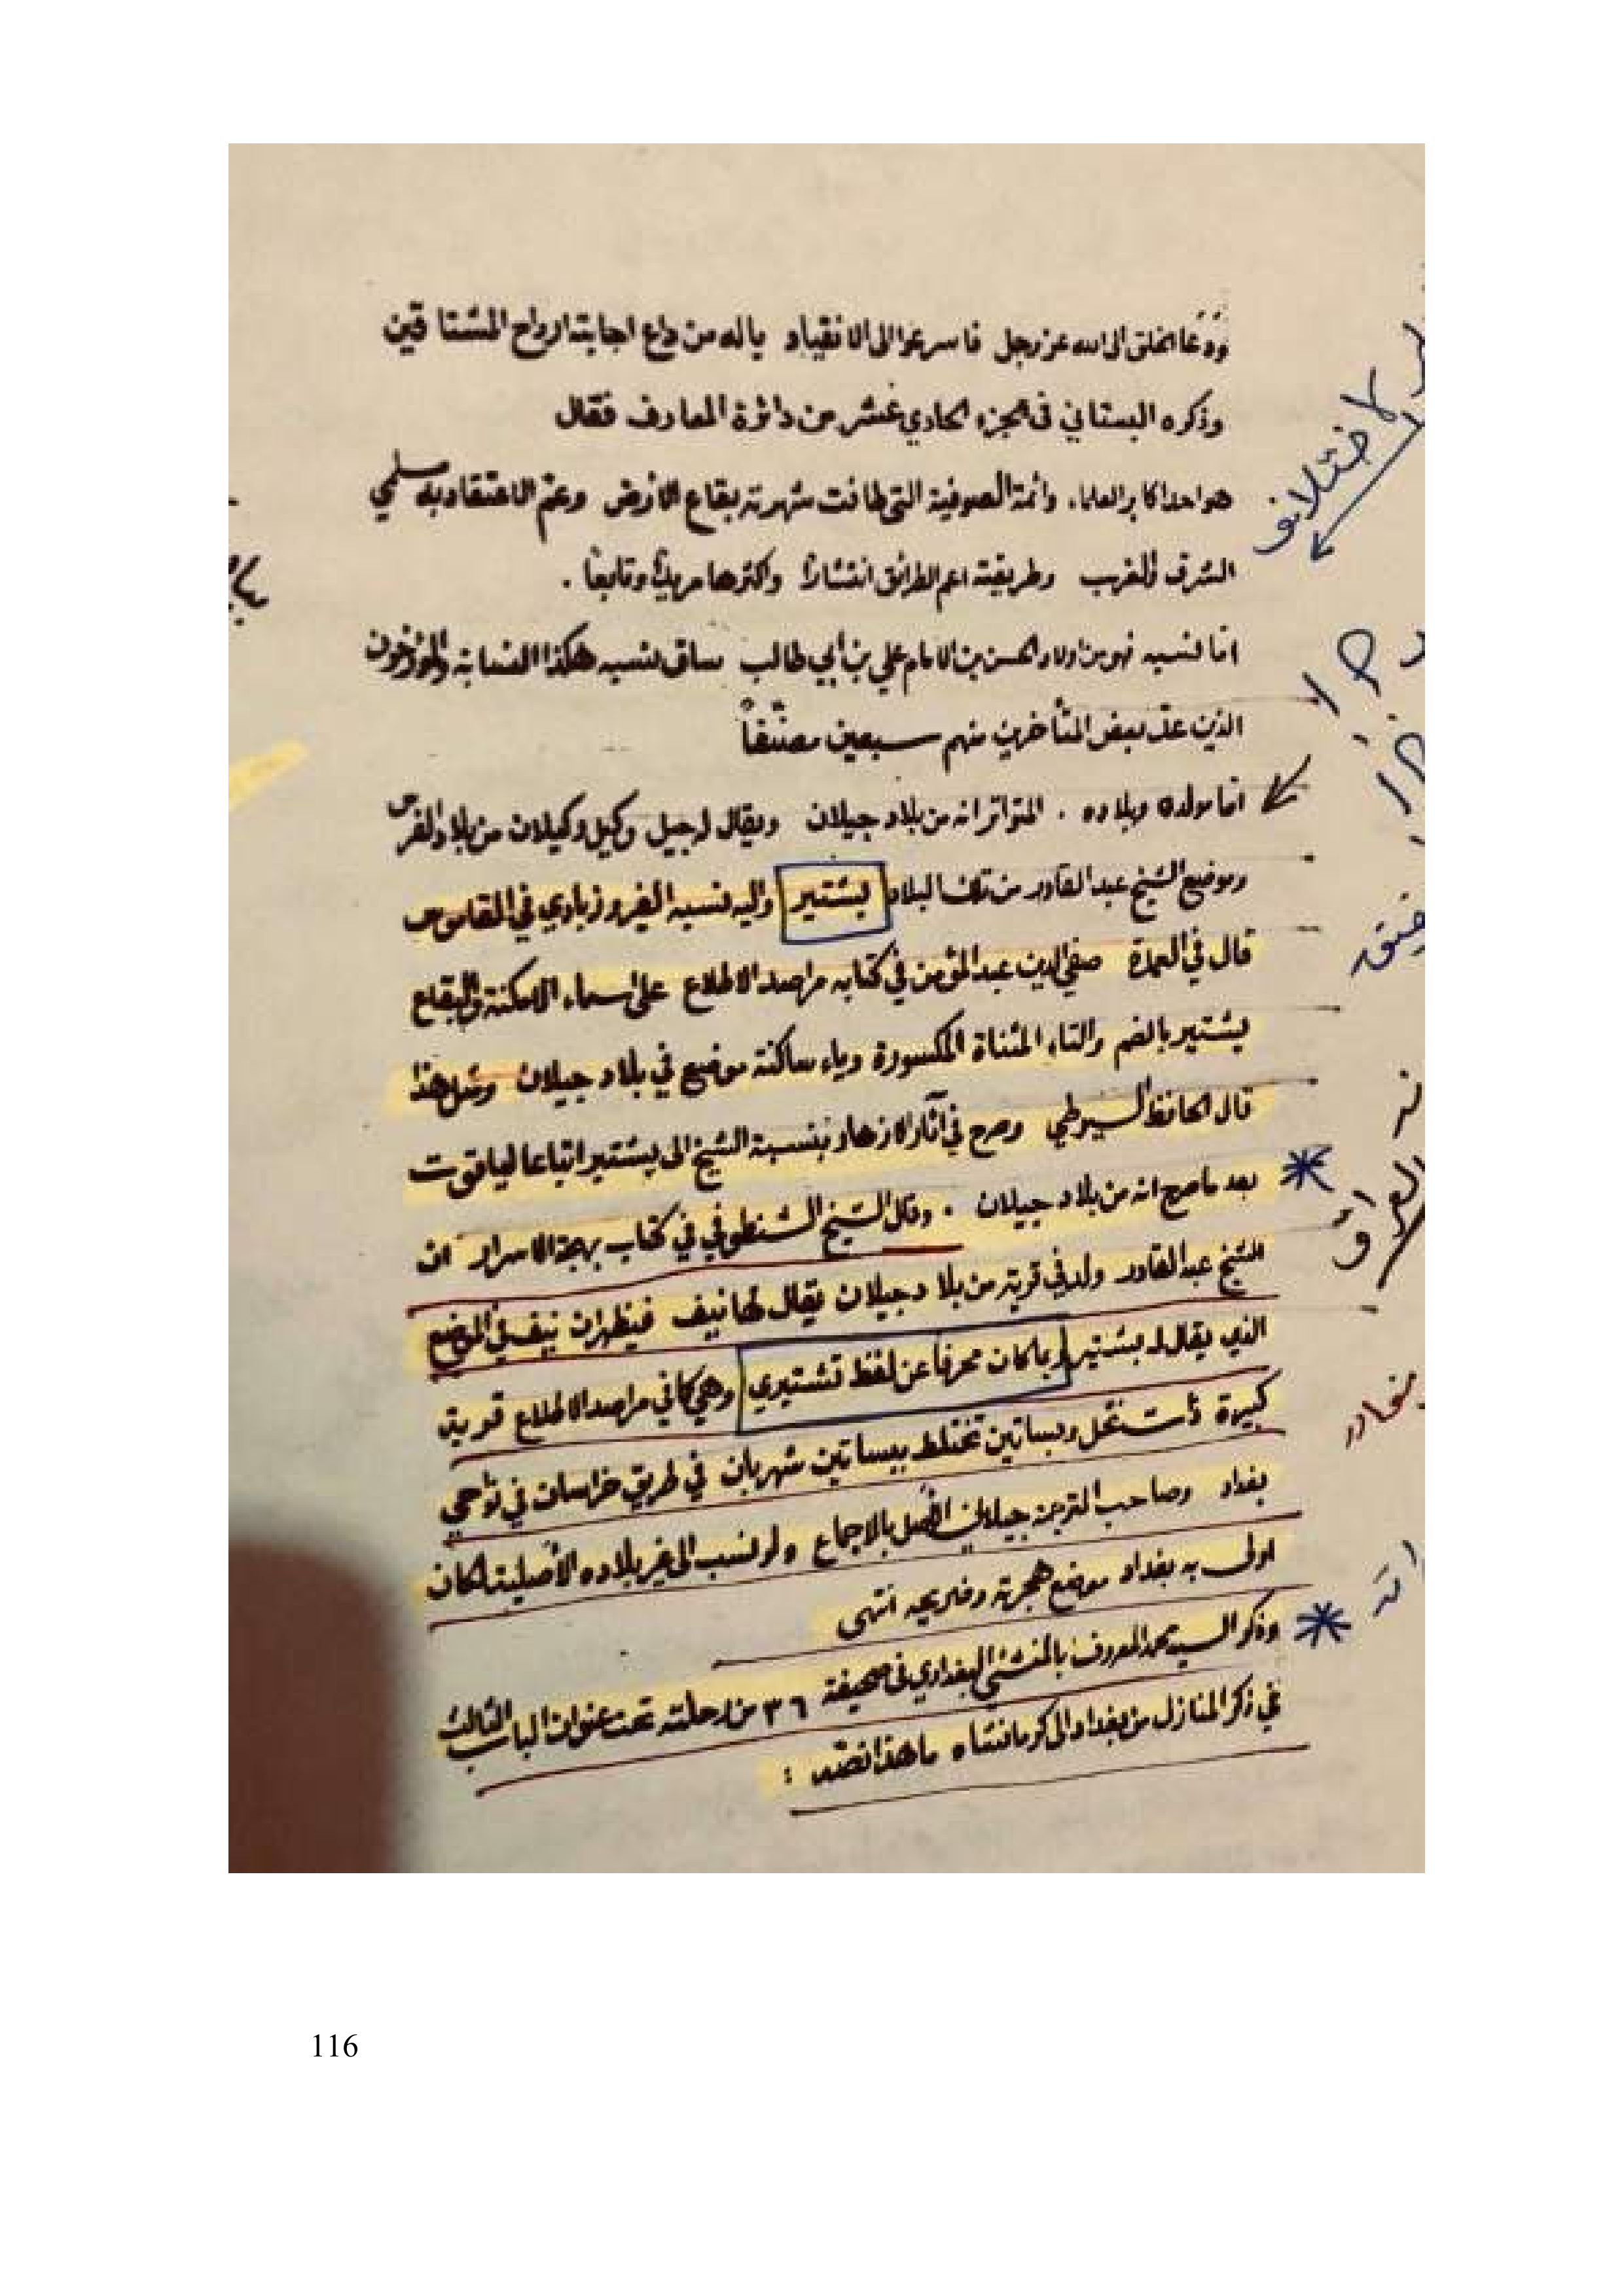 وَدَعَا الخلق الى الله عز وجل فاسرعوا الى الانقياد ياله من داع اجابته ارواح المشتاقين
وذكره البستاني في الجزء الحادي عشر من دائرة المعارف فقال
هو احد اكابر العلماء وائمة الصوفية التي طافت شهرته بقاع الارض وعم الاعتقاد به
الشرق والغرب وطريقته اعم الطرائق انتشاراً واكثرها مريداً وتابعاً .
اما نسبه فهو من اولاد الحسن بن الامام علي بن أبي طالب ساق نسبه هكذا النسابة والمؤرخون
الذين عد بعض المتأخرين منهم سبعين مصنّفاً
اما مولده وبلاده . المتواتر انه من بلاد جيلان ويقال له جيل وكيل وكيلان من بلاد الفرس
وموضع الشيخ عبد القادر من تلك البلاد بشتير واليه نسبه الفيروزبادي في القاموس
قال في العمدة صفي الدين عبد المؤمن في كتابه مراصد الاطلاع على اسماء الامكنة والبقاع
بشتير بالضم والتاء المثناة المكسورة وياء ساكنة موضع في بلاد جيلان ومثل هذا
قال الحافظ السيوطي وصرح في آثار الازهار بنسبة الشيخ الى بشتير اتباعا لياقوت
بعد ما صرح انه من بلاد جيلان . وقال الشيخ الشنطوفي في كتاب بهجة الاسرار ان
الشيخ عبد القادر ولد في قرية من بلاد جيلان يقال لها نيف فيظهر ان نيف في الموضع
الذي يقال له بشتير محرفاً عن لفظ تشتيري وهي كما في مراصد الاطلاع قرية
كبيرة ذات نخل وبساتين تختلط ببساتين شهربان في طريق خراسان في نواحي
بغداد وصاحب الترجمة جيلاني الأصل بالاجماع ولو نسب الى غير بلاده الأصلية لكان
اولى به بغداد موضع هجرته وضريحه انتهى
وذكر السيد محمد المعروف بالمنشئ البغدادي في صحيفة ٣٦ من رحلته تحت عنوان الباب الثالث
في ذكر المنازل من بغداد الى كرمانشاه ما هذا نصه :
العراق
116